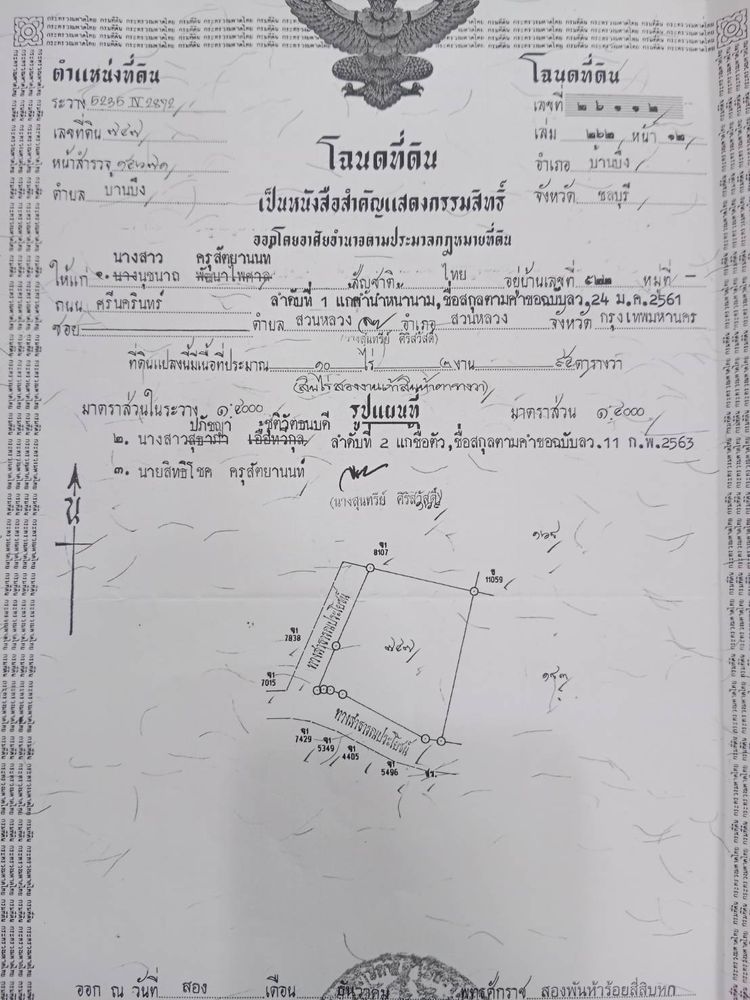 ตำแหน่งที่ดิน
ระวาง 5235 IV 2892
เลขที่ดิน ๗๔๗
หน้าสำรวจ
ตำบล บ้านบึง
โฉนดที่ดิน
เลขที่ ๒๖๑๑๒
เล่ม ๒๖๒ หน้า ๑๒
อำเภอ บ้านบึง
จังหวัด ชลบุรี
โฉนดที่ดิน
เป็นหนังสือสำคัญแสดงกรรมสิทธิ์
ออกโดยอาศัยอำนาจตามประมวลกฎหมายที่ดิน
นางสาว ครุสัตยานนท
ให้แก่ ๑. นางนุชนาถ สัญชาติ ไทย อยู่บ้านเลขที่ ๕๒๒ หมู่ที่ –
ถนน ศรีนครินทร์ ลำดับที่ 1 แก้คำนำหน้านาม,ชื่อสกุลตามคำขอฉบับลว.24 ม.ค.2561
ซอย ตำบล สวนหลวง อำเภอ สวนหลวง จังหวัด กรุงเทพมหานคร
(นางสุนทรีย์ ศิริสวัสดิ์)
ที่ดินแปลงนี้มีเนื้อที่ประมาณ ๑๐ ไร่ งาน ๙๕ ตารางวา
มาตราส่วนในระวาง ๑:๔๐๐๐ รูปแผนที่ มาตราส่วน ๑:๔๐๐๐
ปภัชญา ชุติวัตธนบดี
๒. นางสาวสุชาภา เอื้อทวีกุล ลำดับที่ 2 แก้ชื่อตัว,ชื่อสกุลตามคำขอฉบับลว.11 ก.พ.2563
๓. นายสิทธิโชค ครุสัตยานนท์
(นางสุนทรีย์ ศิริสวัสดิ์)
น
๑๖๙
ข1
8107
ข
11059
ทางสาธารณประโยชน์
ข1
7838
๗๔๗
ข1
7015
๑๙๓
ทางสาธารณประโยชน์
ข1
7429
ข1
5349
ข1
4405
ข1
5496
ออก ณ วันที่ สอง เดือน ธันวาคม พุทธศักราช สองพันห้าร้อยสี่สิบหก